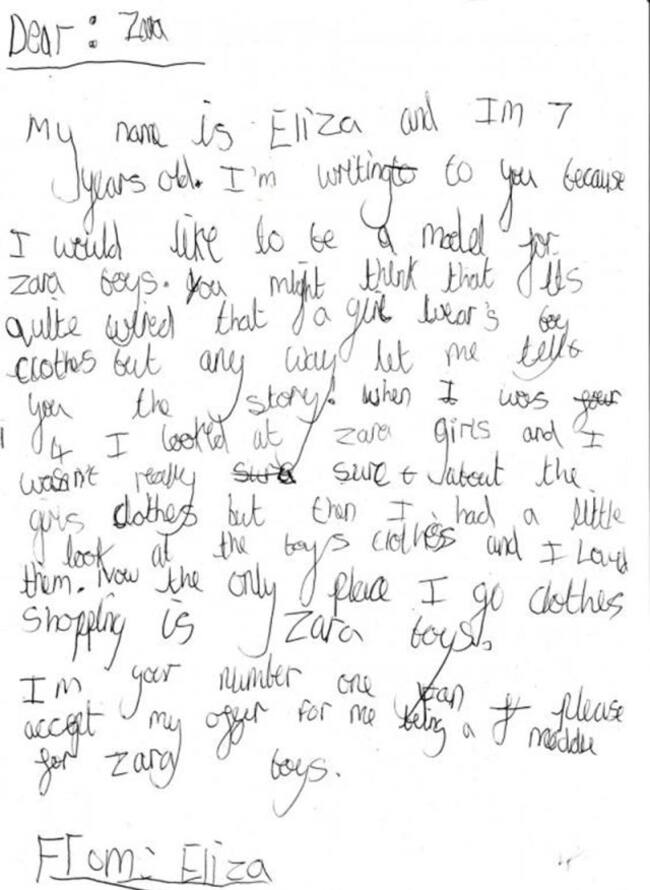 Dear: Zara
My name is Eliza and Im 7
years old. I'm writing to to you because
I would like to be a model for
Zara boys. You might think that its
quite wired that a girl wear's boy
clothes but any way let me tell
you the story! when I was four
4 I looked at zara girls and I
wasn't really sure sure about the
girls clothes but then I had a little
look at the boys clothes and I Loved
them. Now the only place I go clothes
shopping is Zara boys.
Im your number one fan please
accept my offer for me being a moddle
for zara boys.
From: Eliza